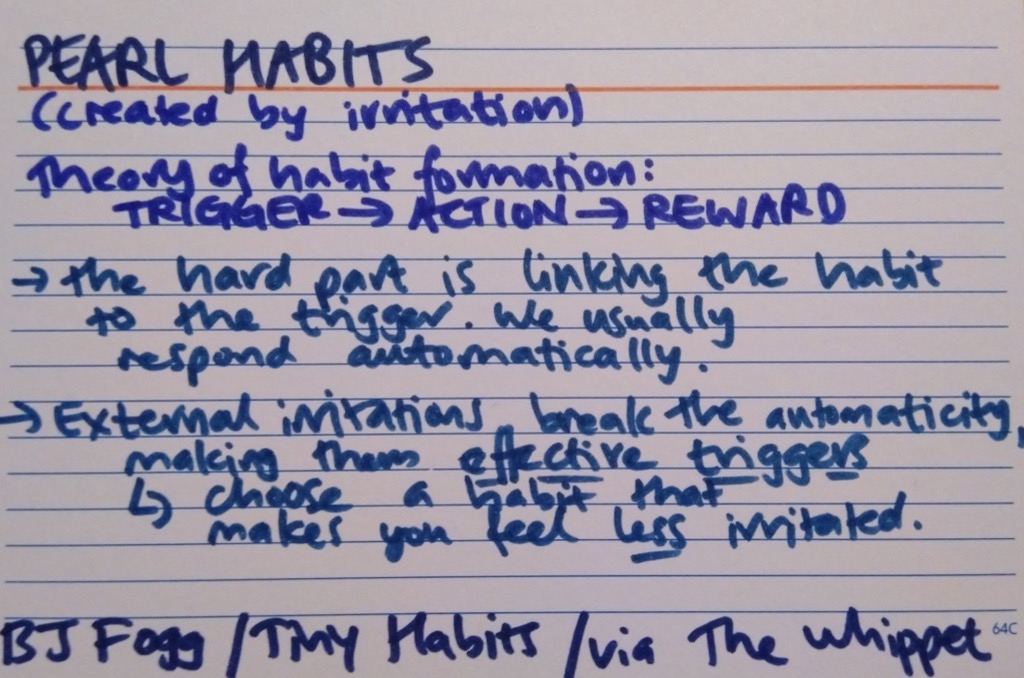 PEARL HABITS
(created by irritation)
Theory of habit formation:
TRIGGER → ACTION → REWARD
→ the hard part is linking the habit
to the trigger. We usually
respond automatically.
→ External irritations break the automaticity,
making them effective triggers
↳ choose a habit that
makes you feel less irritated.
BJ Fogg / Tiny Habits / via The Whippet
64C